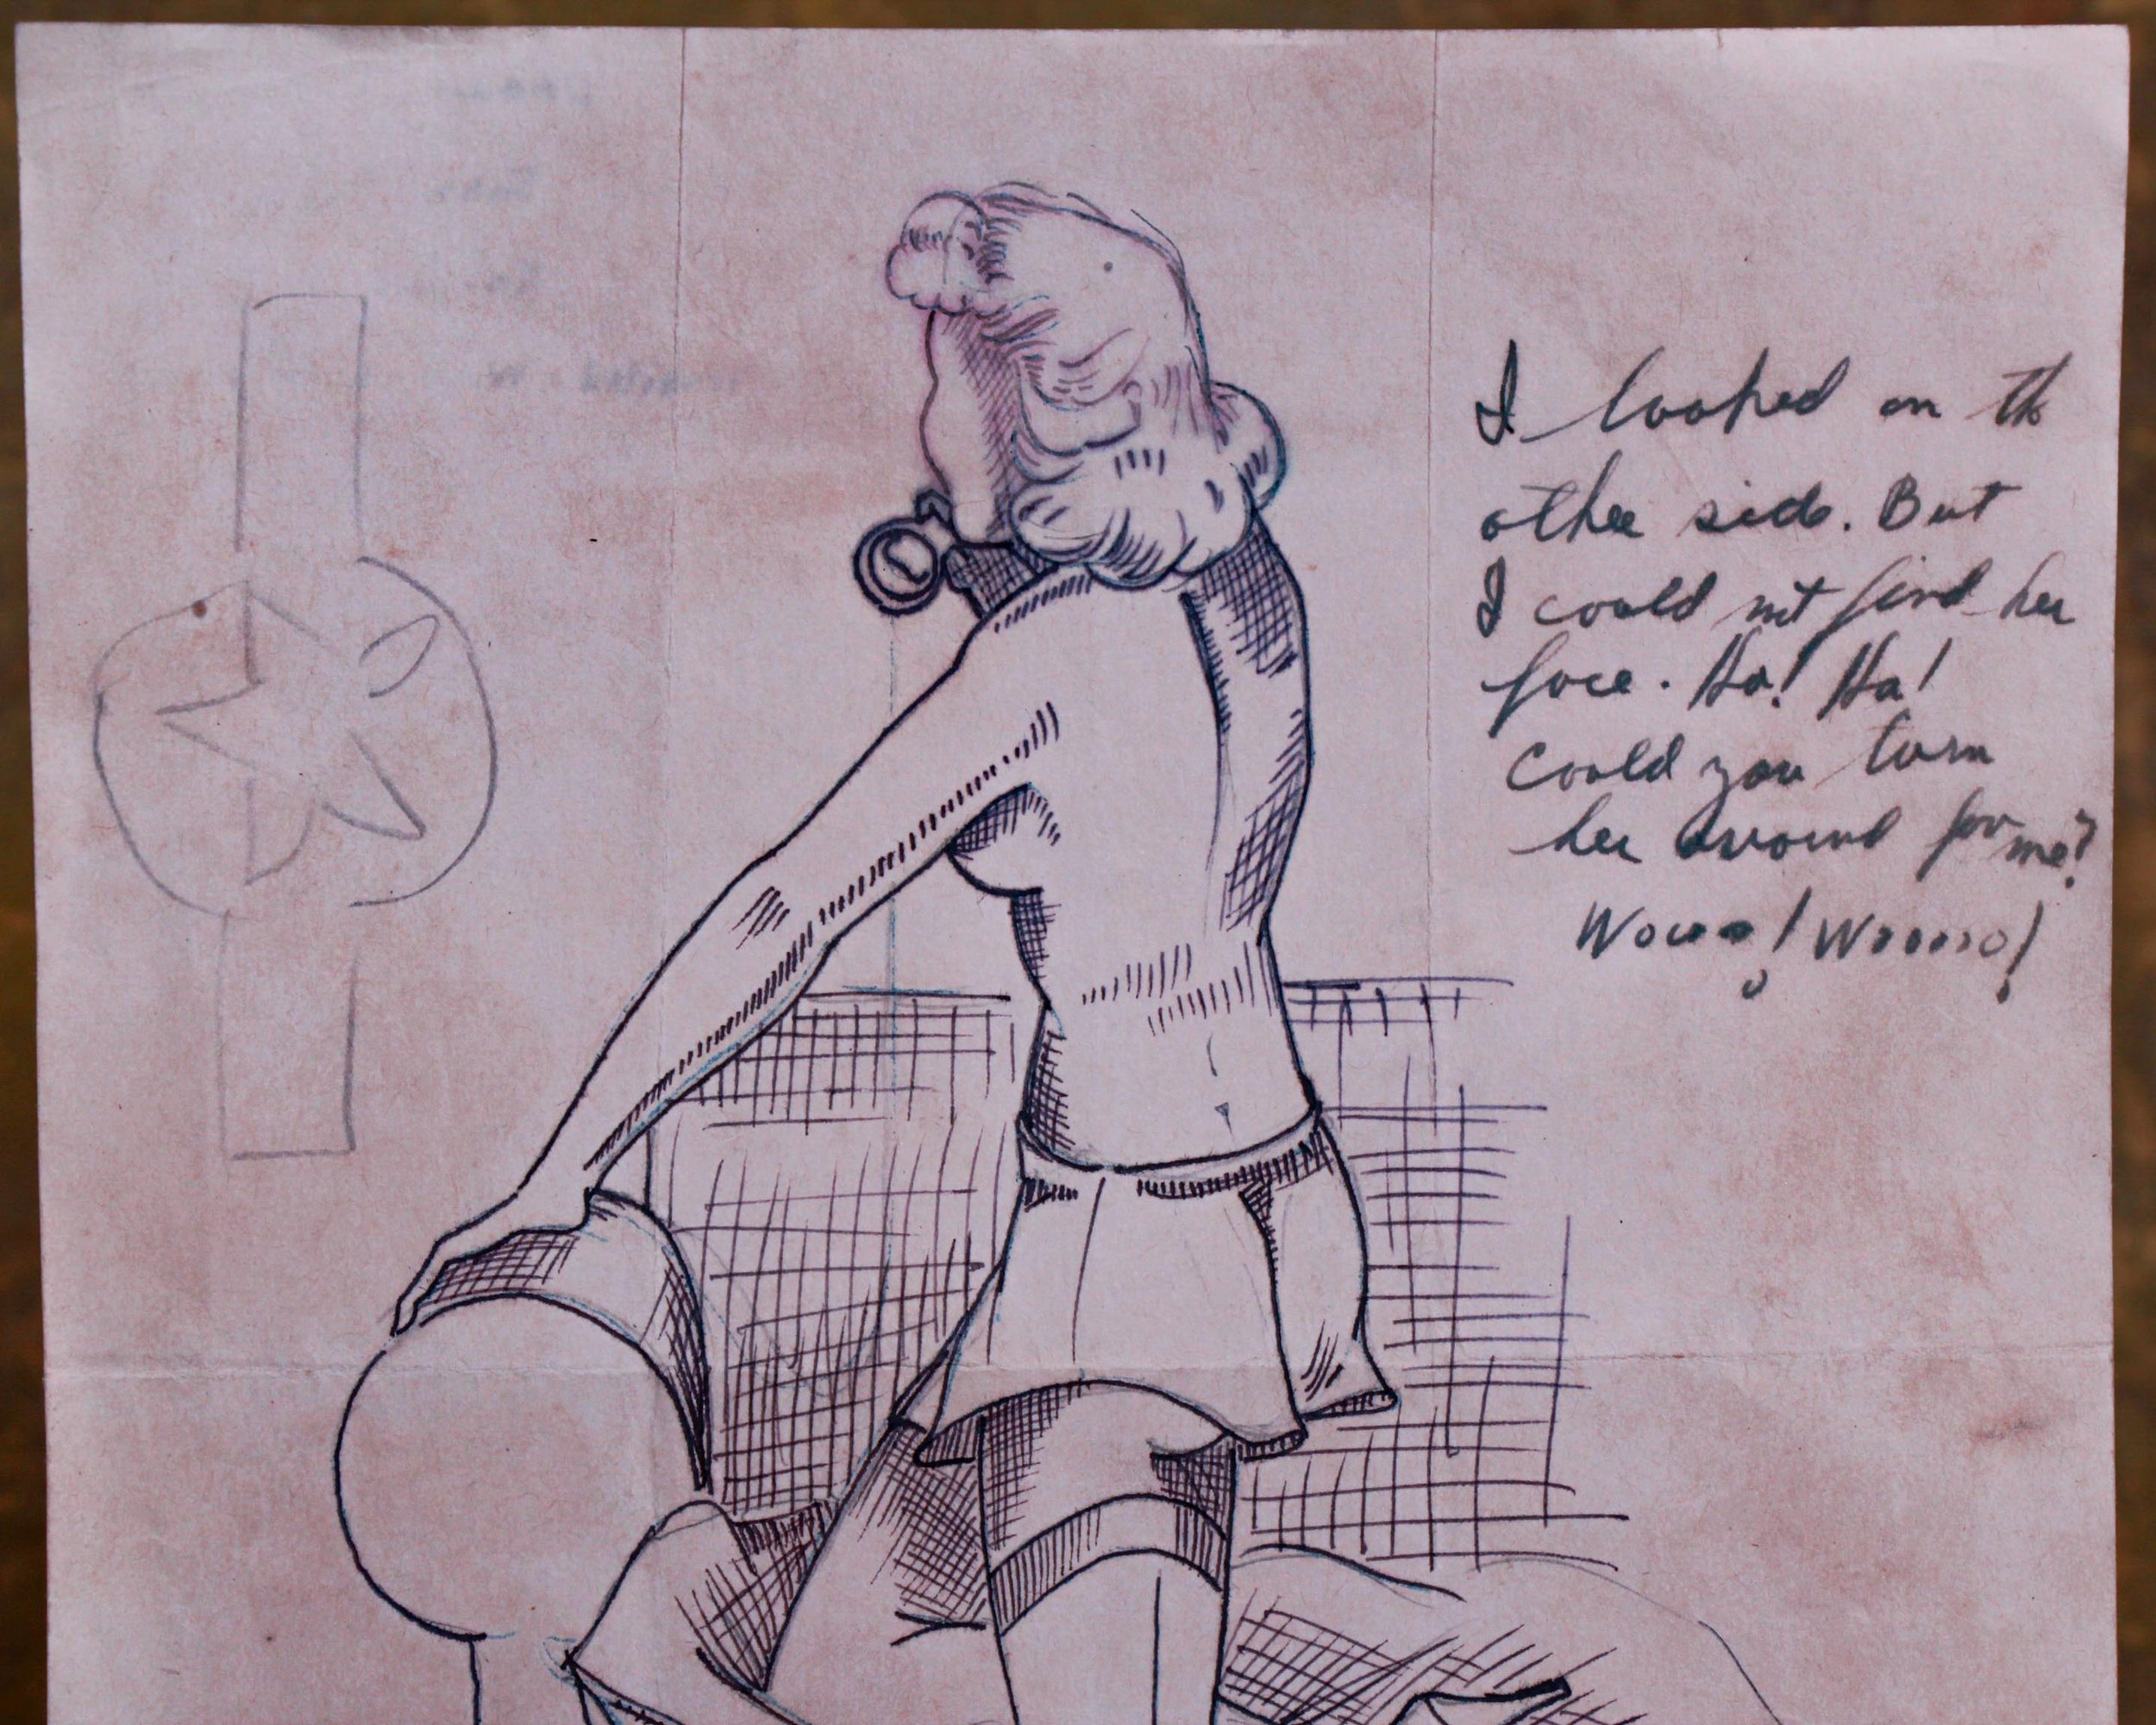 I looked on th
other side. But
I could not find her
face. Ha! Ha!
Could you turn
her around for me?
Wooo! Wooooo!